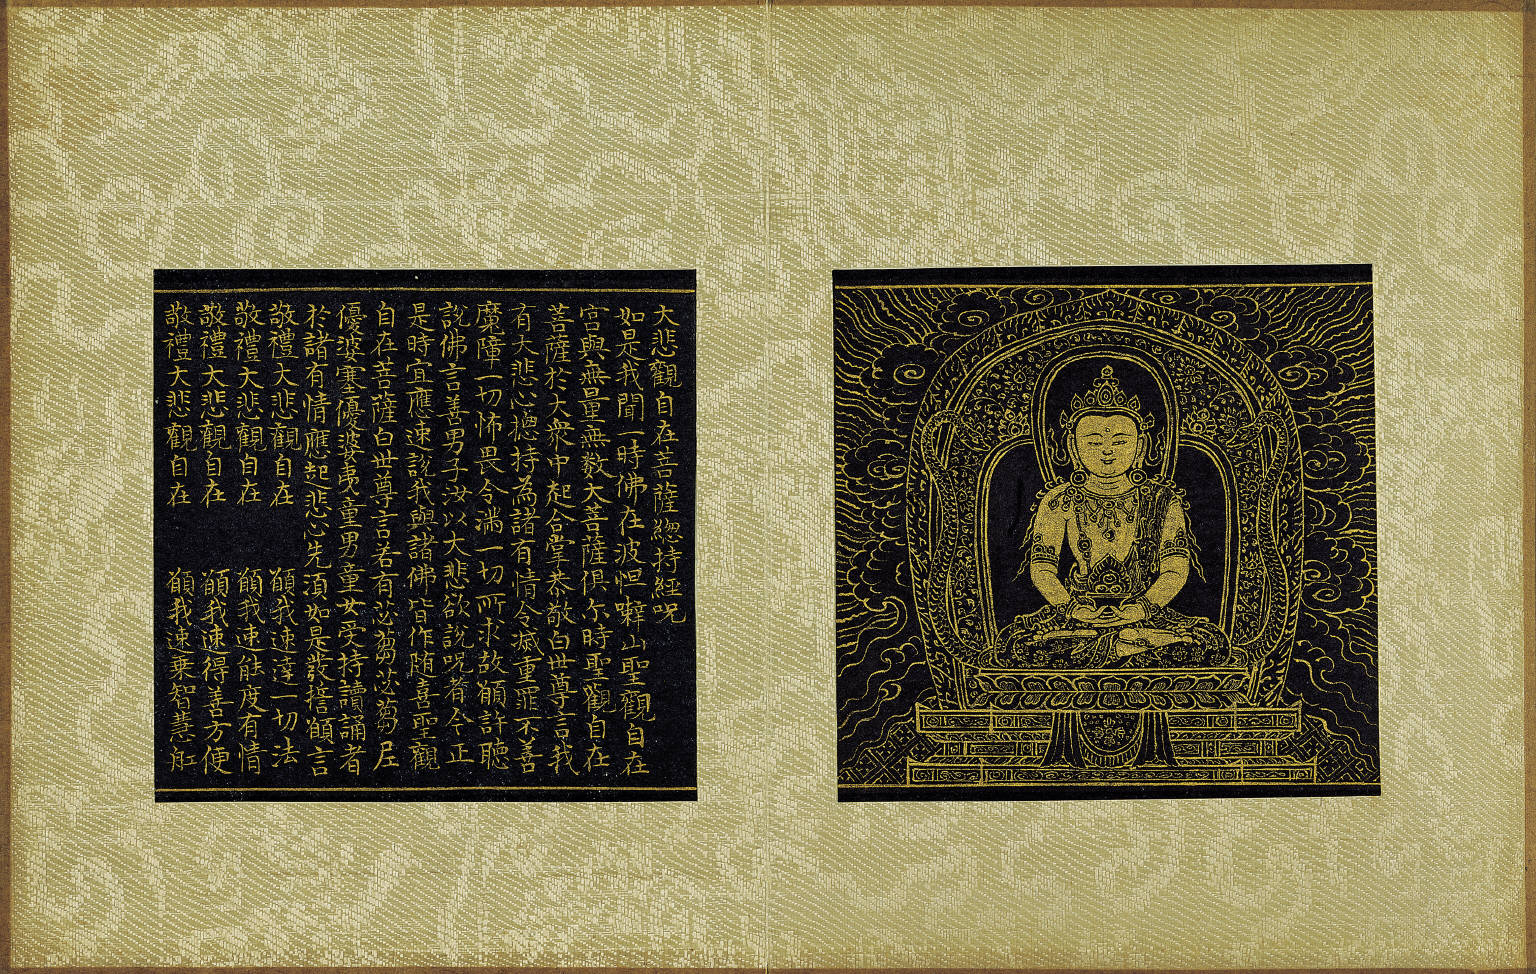 大悲觀自在菩薩總持經呪
如是我聞一時佛在波怛囉山聖觀自在
宮與無量無數大菩薩俱尒時聖觀自在
菩薩於大衆中起合掌恭敬白世尊言我
有大悲心揔持為諸有情令滅重罪不善
魔障一切怖畏令滿一切所求故願許聽
說佛言善男子汝以大悲欲說呪者今正
是時宜應速說我與諸佛皆作随喜聖觀
自在菩薩白世尊言若有苾蒭苾蒭尼
優婆塞優婆夷童男童女受持讀誦者
於諸有情應起悲心先須如是發誓願言
敬禮大悲觀自在 願我速達一切法
敬禮大悲觀自在 願我速能度有情
敬禮大悲觀自在 願我速得善方便
敬禮大悲觀自在 願我速乗智慧舡